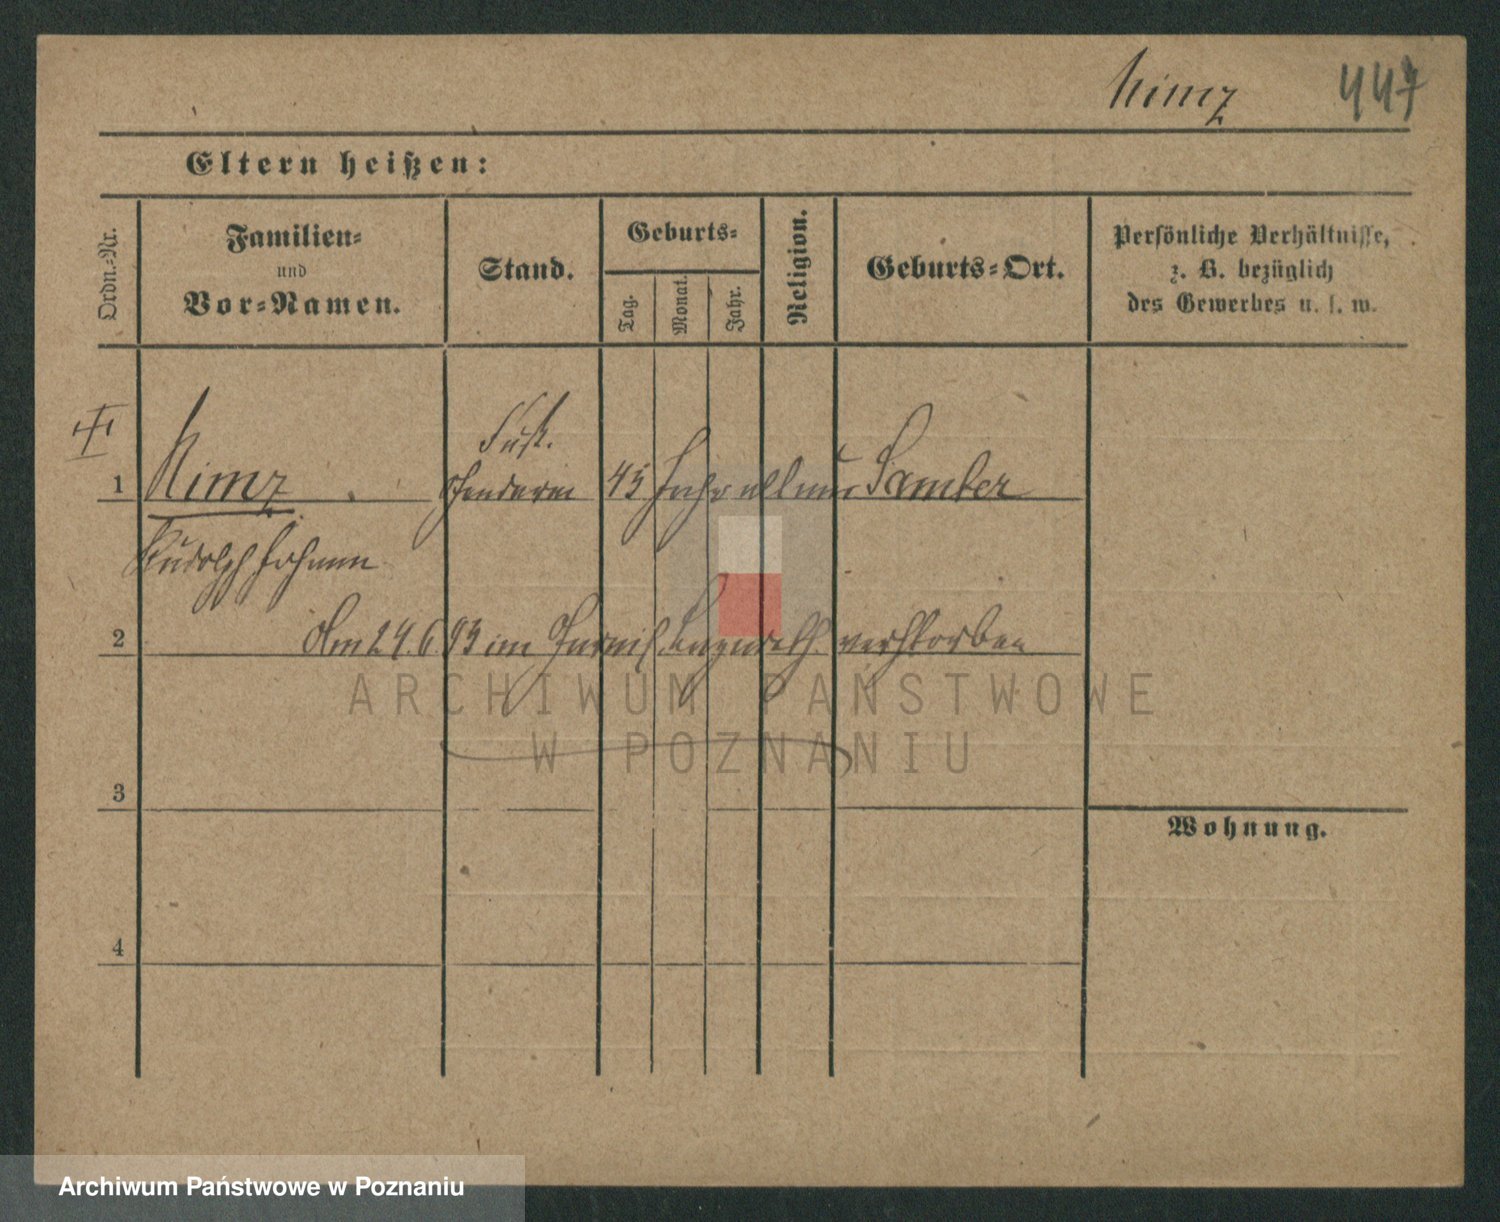 Nimz 447
Eltern heißen:
Ordn.-Nr.
Familien-
und
Vor-Namen.
Stand.
Geburts-
Tag.
Monat.
Jahr.
Religion.
Geburts-Ort.
Persönliche Verhältnisse,
z. B. bezüglich
des Gewerbes u. s. w.
1 Nimz 45 Jahr alt Samter
Rudolph Johann
2 Am 24.6.93 im Garnis. Lazareth verstorben
3
Wohnung.
4
ARCHIWUM PAŃSTWOWE
W POZNANIU
Archiwum Państwowe w Poznaniu